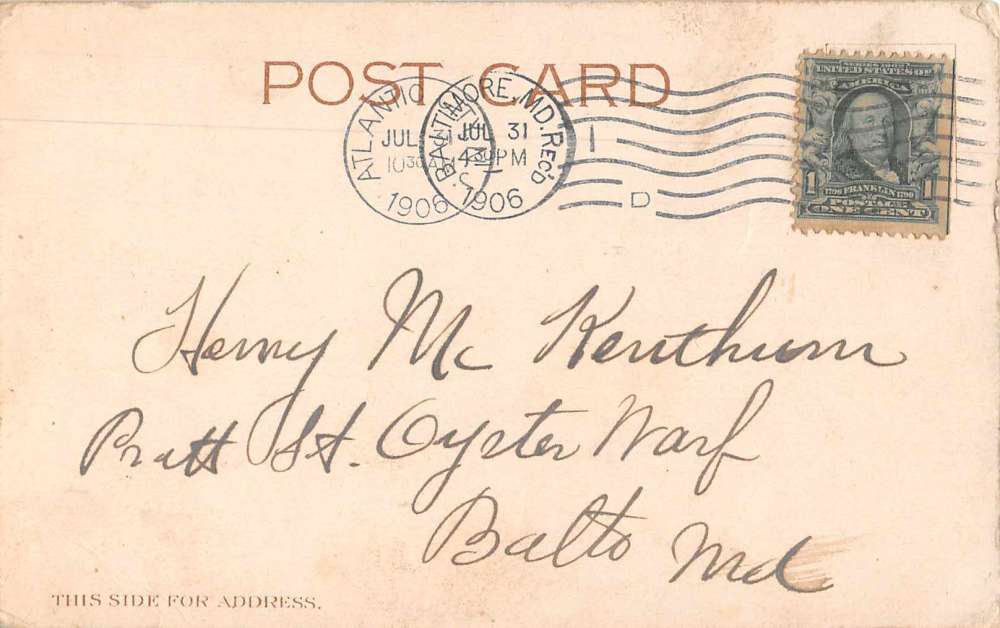 POST CARD
ATLANTIC
JUL
10 30 A
1906
BALTIMORE, MD. REC'D
JUL 31
4 30 PM
1906
D
SERIES 1902
UNITED STATES OF
AMERICA
1 1790 FRANKLIN 1790 1
POSTAGE
ONE CENT
Henry Mc Kenthum
Pratt St. Oyster Warf
Balto Md
THIS SIDE FOR ADDRESS.